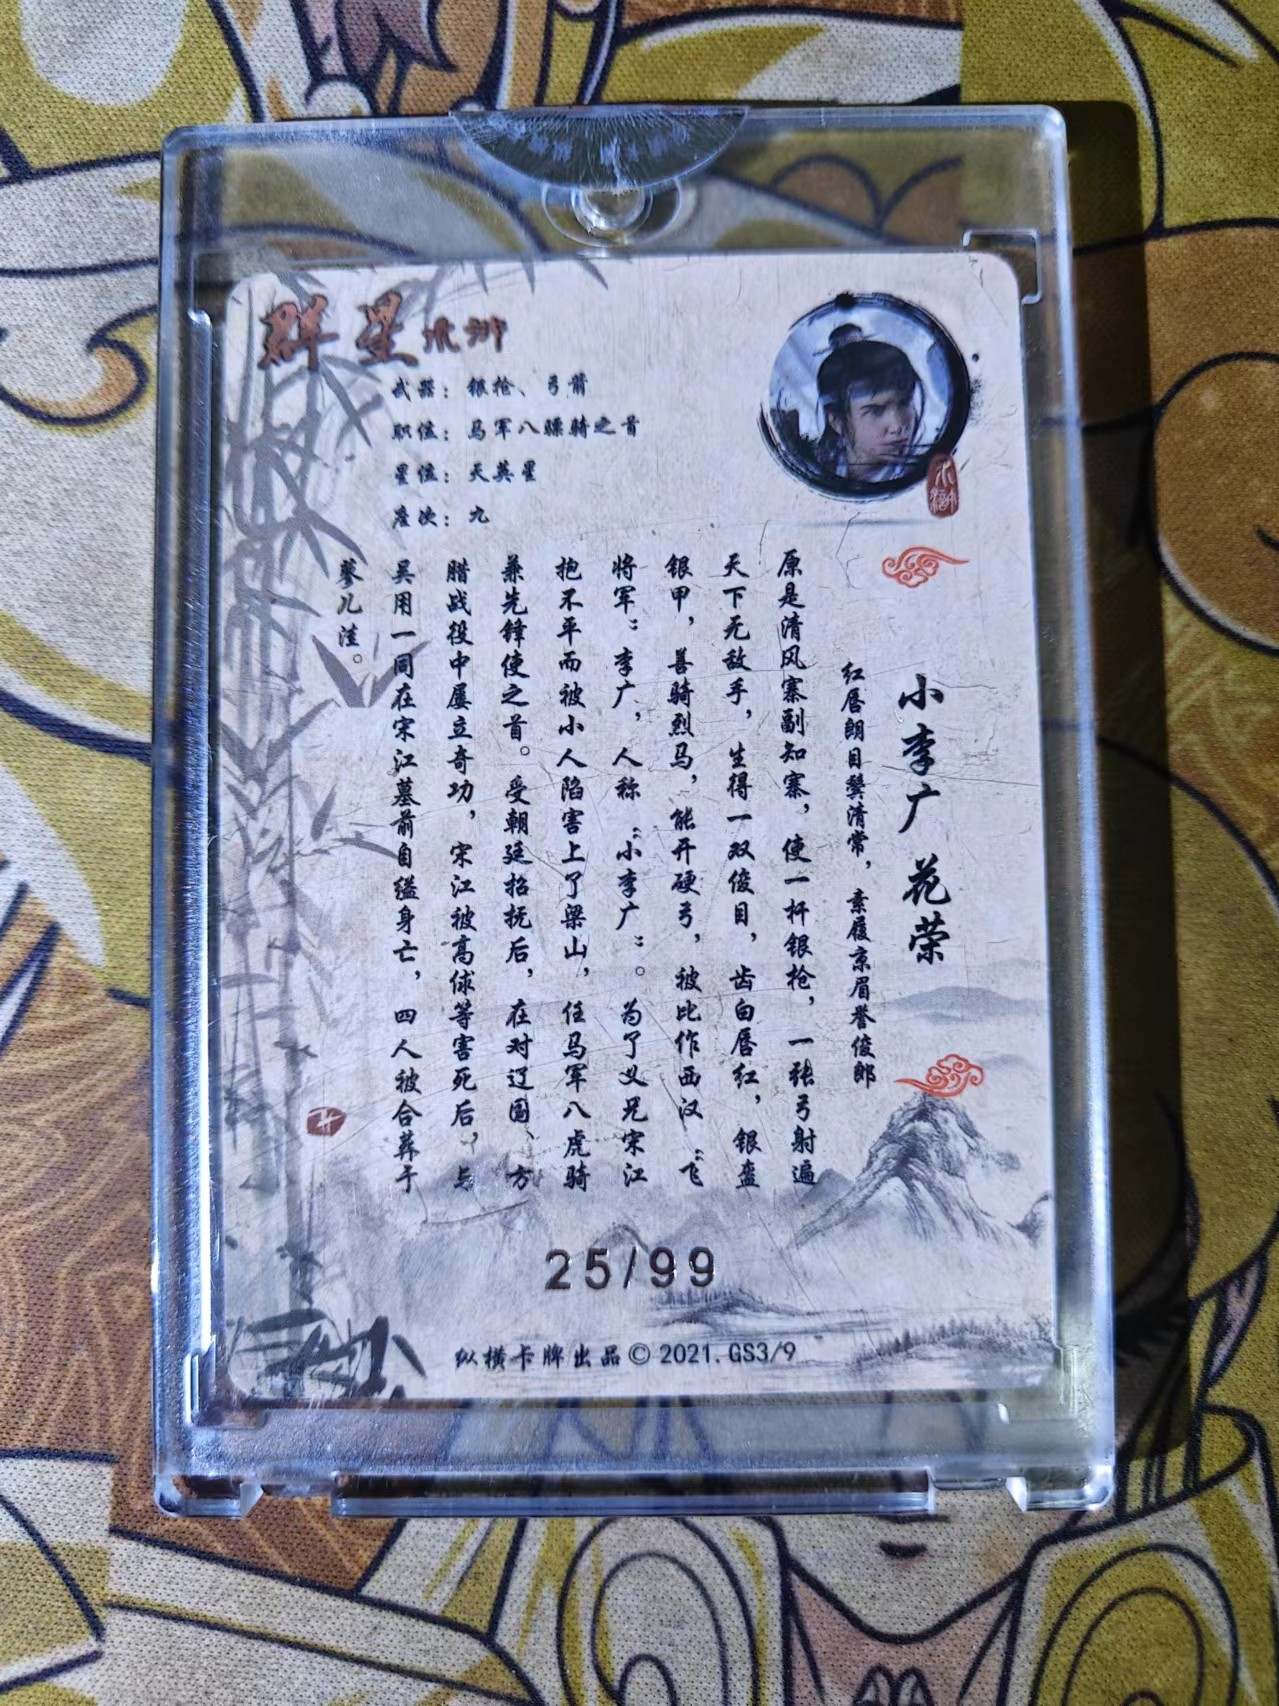 群星水浒
武器：银枪、弓箭
职位：马军八骠骑之首
星位：天英星
座次：九
水浒
小李广 花荣
红唇朗目鬓清常，素履京眉誉俊郎
原是清风寨副知寨，使一杆银枪，一张弓射遍
天下无敌手，生得一双俊目，齿白唇红，银盔
银甲，善骑烈马，能开硬弓，被比作西汉“飞
将军”李广，人称“小李广”。为了义兄宋江
抱不平而被小人陷害上了梁山，任马军八虎骑
兼先锋使之首。受朝廷招抚后，在对辽国、方
腊战役中屡立奇功，宋江被高俅等害死后，与
吴用一同在宋江墓前自缢身亡，四人被合葬于
蓼儿洼。
25/99
纵横卡牌出品©2021.GS3/9